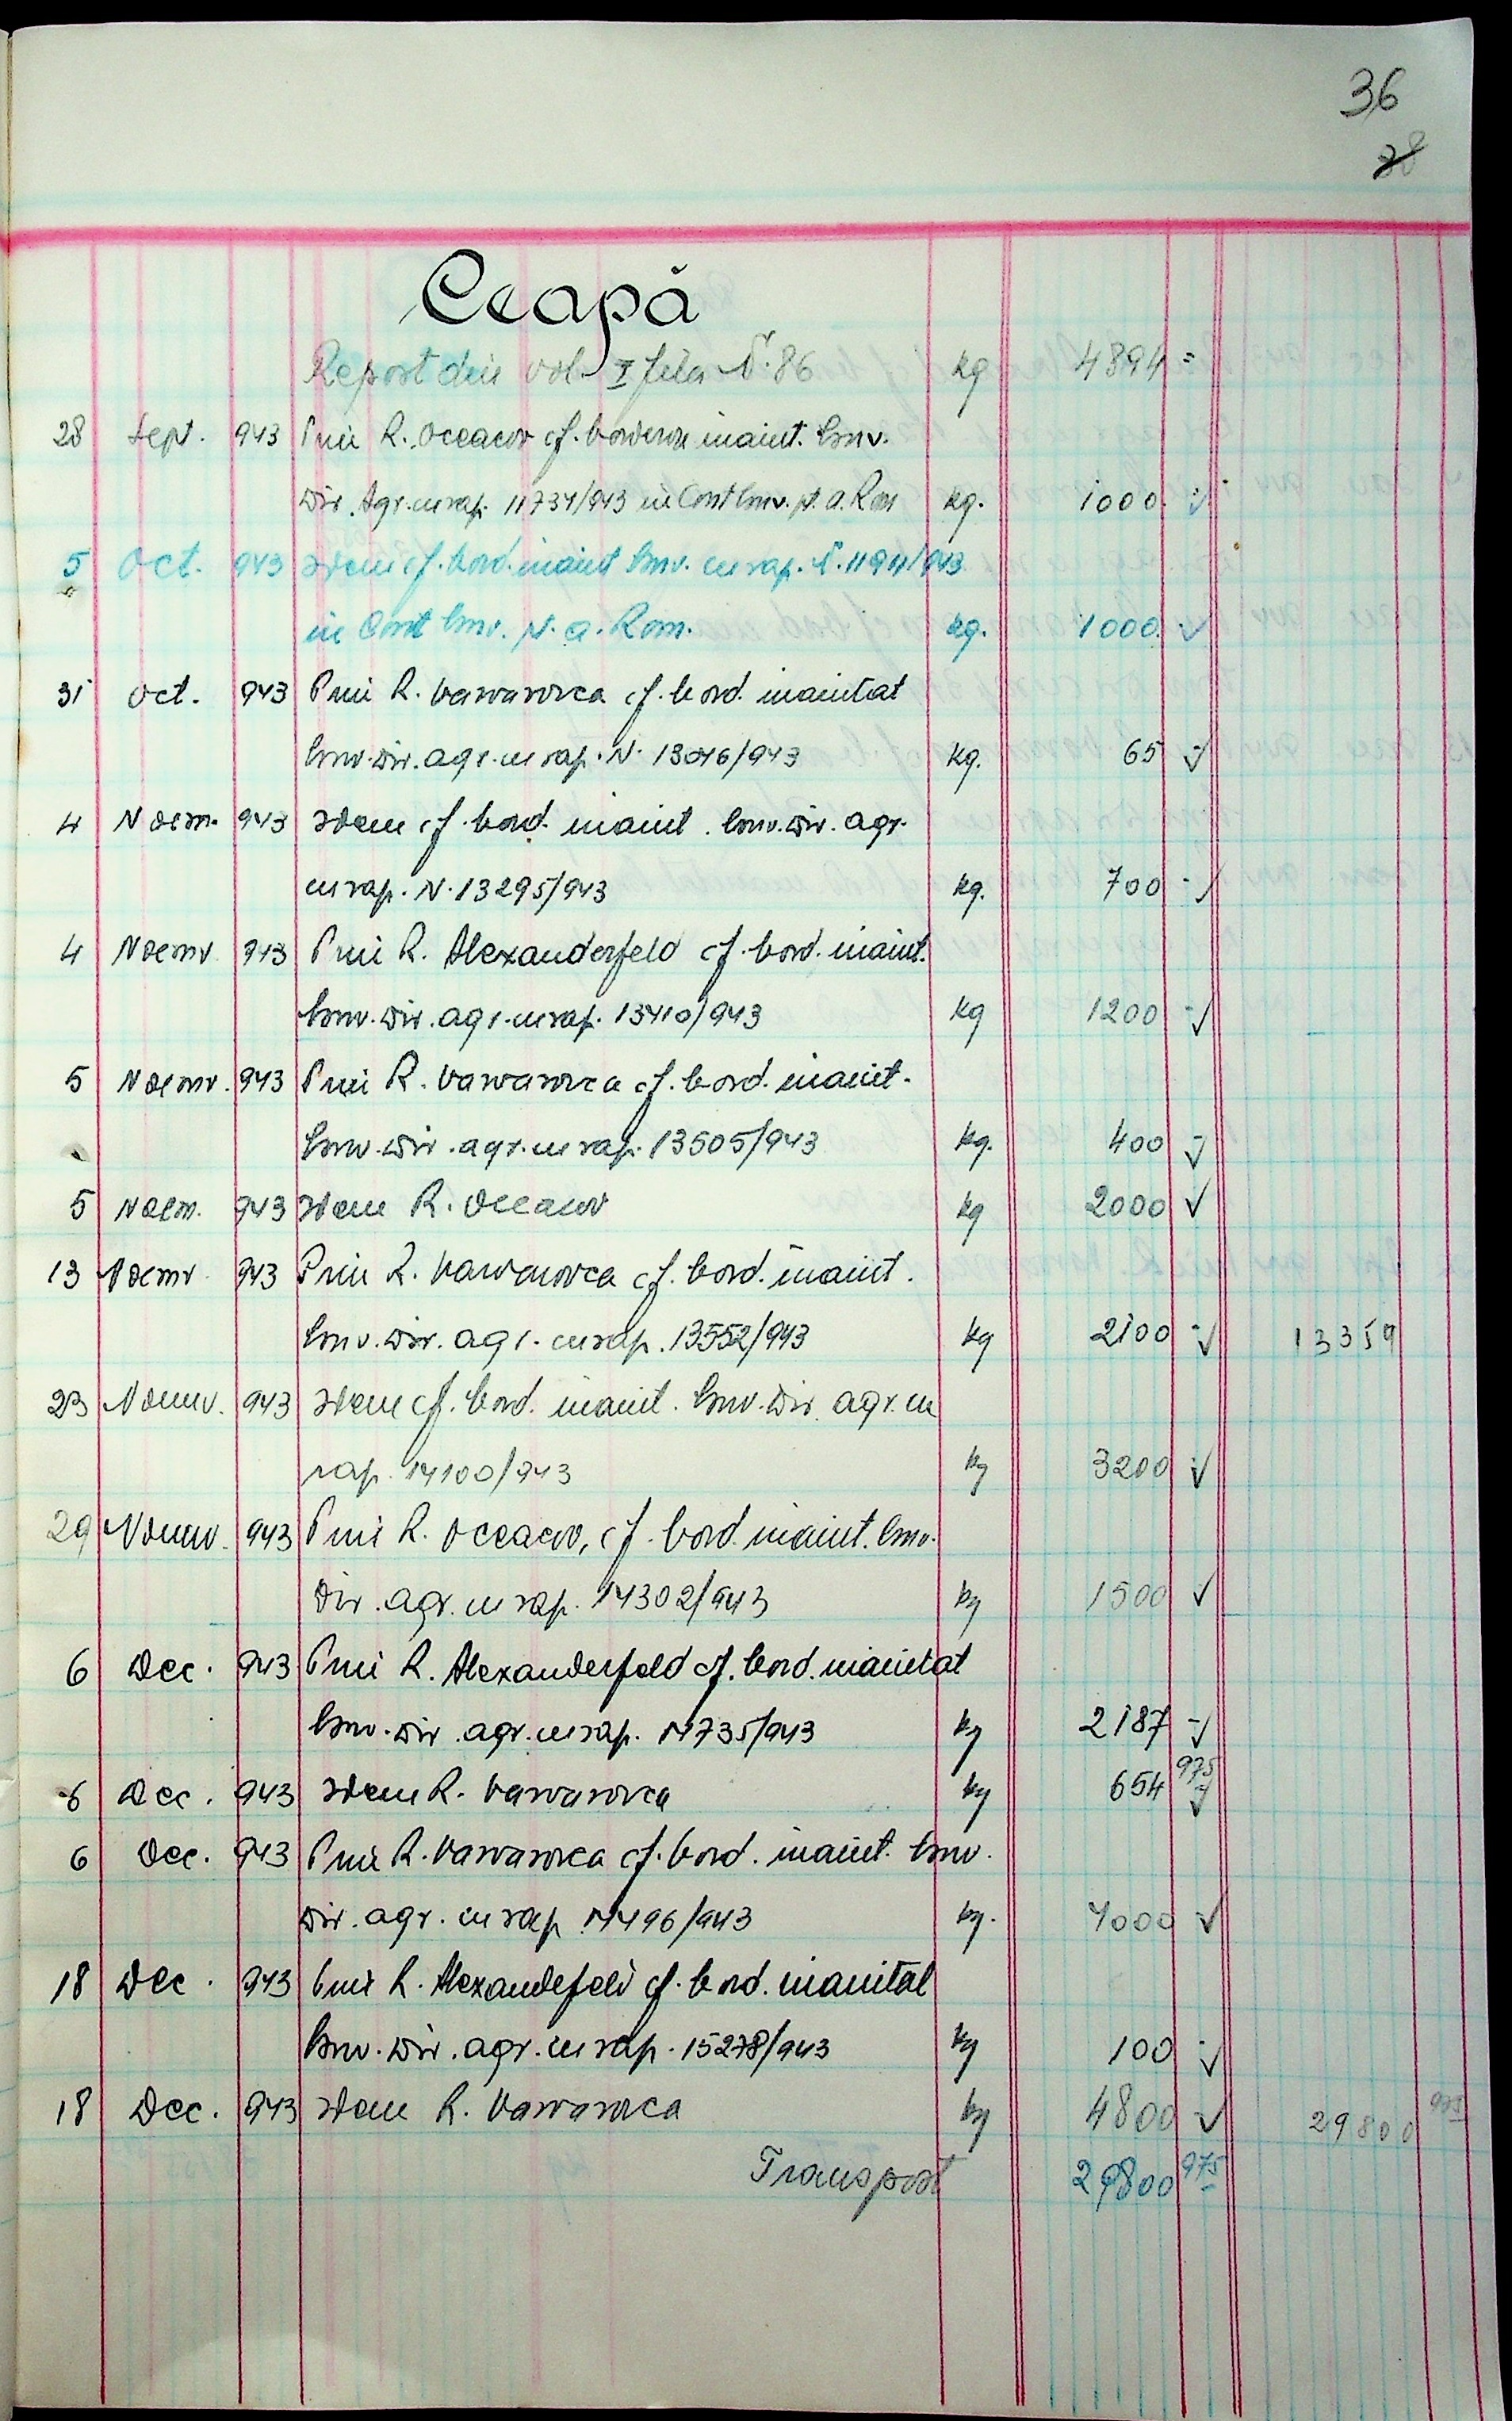 36
38
Ceapă
Report din vol. I fila N. 86 kg 4894 =
28 Sept. 943 Prin R. Oceacov cf. borderou inaint. Guv.
Dir. Agr. cu rap. 11734/943 in Cont Guv. pt. a. Rom kg. 1000 -
5 Oct. 943 Idem cf. bord. inaint Guv. cu rap. N. 11941/943
in Cont Guv. pt. a. Rom. kg. 1000 -
31 Oct. 943 Prin R. Varvarovca cf. bord. inaintat
Guv. Dir. agr. cu rap. N. 13046/943 kg. 65 -
4 Noem. 943 Idem cf. bord. inaint. Guv. Dir. agr.
cu rap. N. 13295/943 kg. 700 -
4 Noemv. 943 Prin R. Alexanderfeld cf. bord. inaint.
Guv. Dir. agr. cu rap. 13410/943 kg 1200 -
5 Noemv. 943 Prin R. Varvarovca cf. bord. inaint.
Guv. Dir. agr. cu rap. 13505/943 kg. 400 -
5 Noem. 943 Idem R. Oceacov kg 2000
13 Noemv. 943 Prin R. Varvarovca cf. bord. inaint.
Guv. Dir. agr. cu rap. 13552/943 kg 2100 - 13359
23 Noemv. 943 Idem cf. bord. inaint. Guv. Dir. agr. cu
rap. 14100/943 kg 3200 -
29 Noemv. 943 Prin R. Oceacov, cf. bord. inaint. Guv.
Dir. agr. cu rap. 14302/943 kg 1500
6 Dec. 943 Prin R. Alexanderfeld cf. bord. inaintat
Guv. Dir. agr. cu rap. 14735/943 kg 2187 -
6 Dec. 943 Idem R. Varvarovca kg 654 975
6 Dec. 943 Prin R. Varvarovca cf. bord. inaint. Guv.
Dir. agr. cu rap 14496/943 kg. 4000
18 Dec. 943 Prin R. Alexandefeld cf. bord. inaintat
Guv. Dir. agr. cu rap. 15278/943 kg 100 -
18 Dec. 943 Idem R. Varvarovca kg 4800 - 29800 975
Transport 29800 975